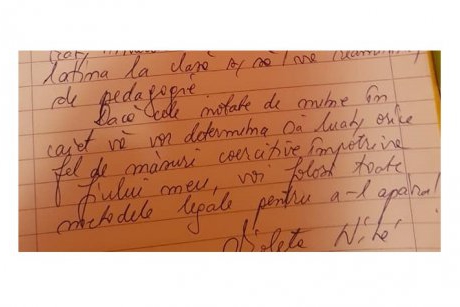 latina la clasă și să vă reamint
de pedagogie
Dacă cele notate de mine în
caiet vă vor determina să luați orice
fel de măsuri coercitive împotriva
fiului meu, voi folosi toate
metodele legale pentru a-l apăra!
Violeta